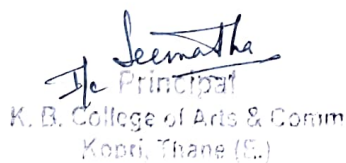 Seematha
I/c Principal
K. B. College of Arts & Comm
Kopri, Thane (E.)